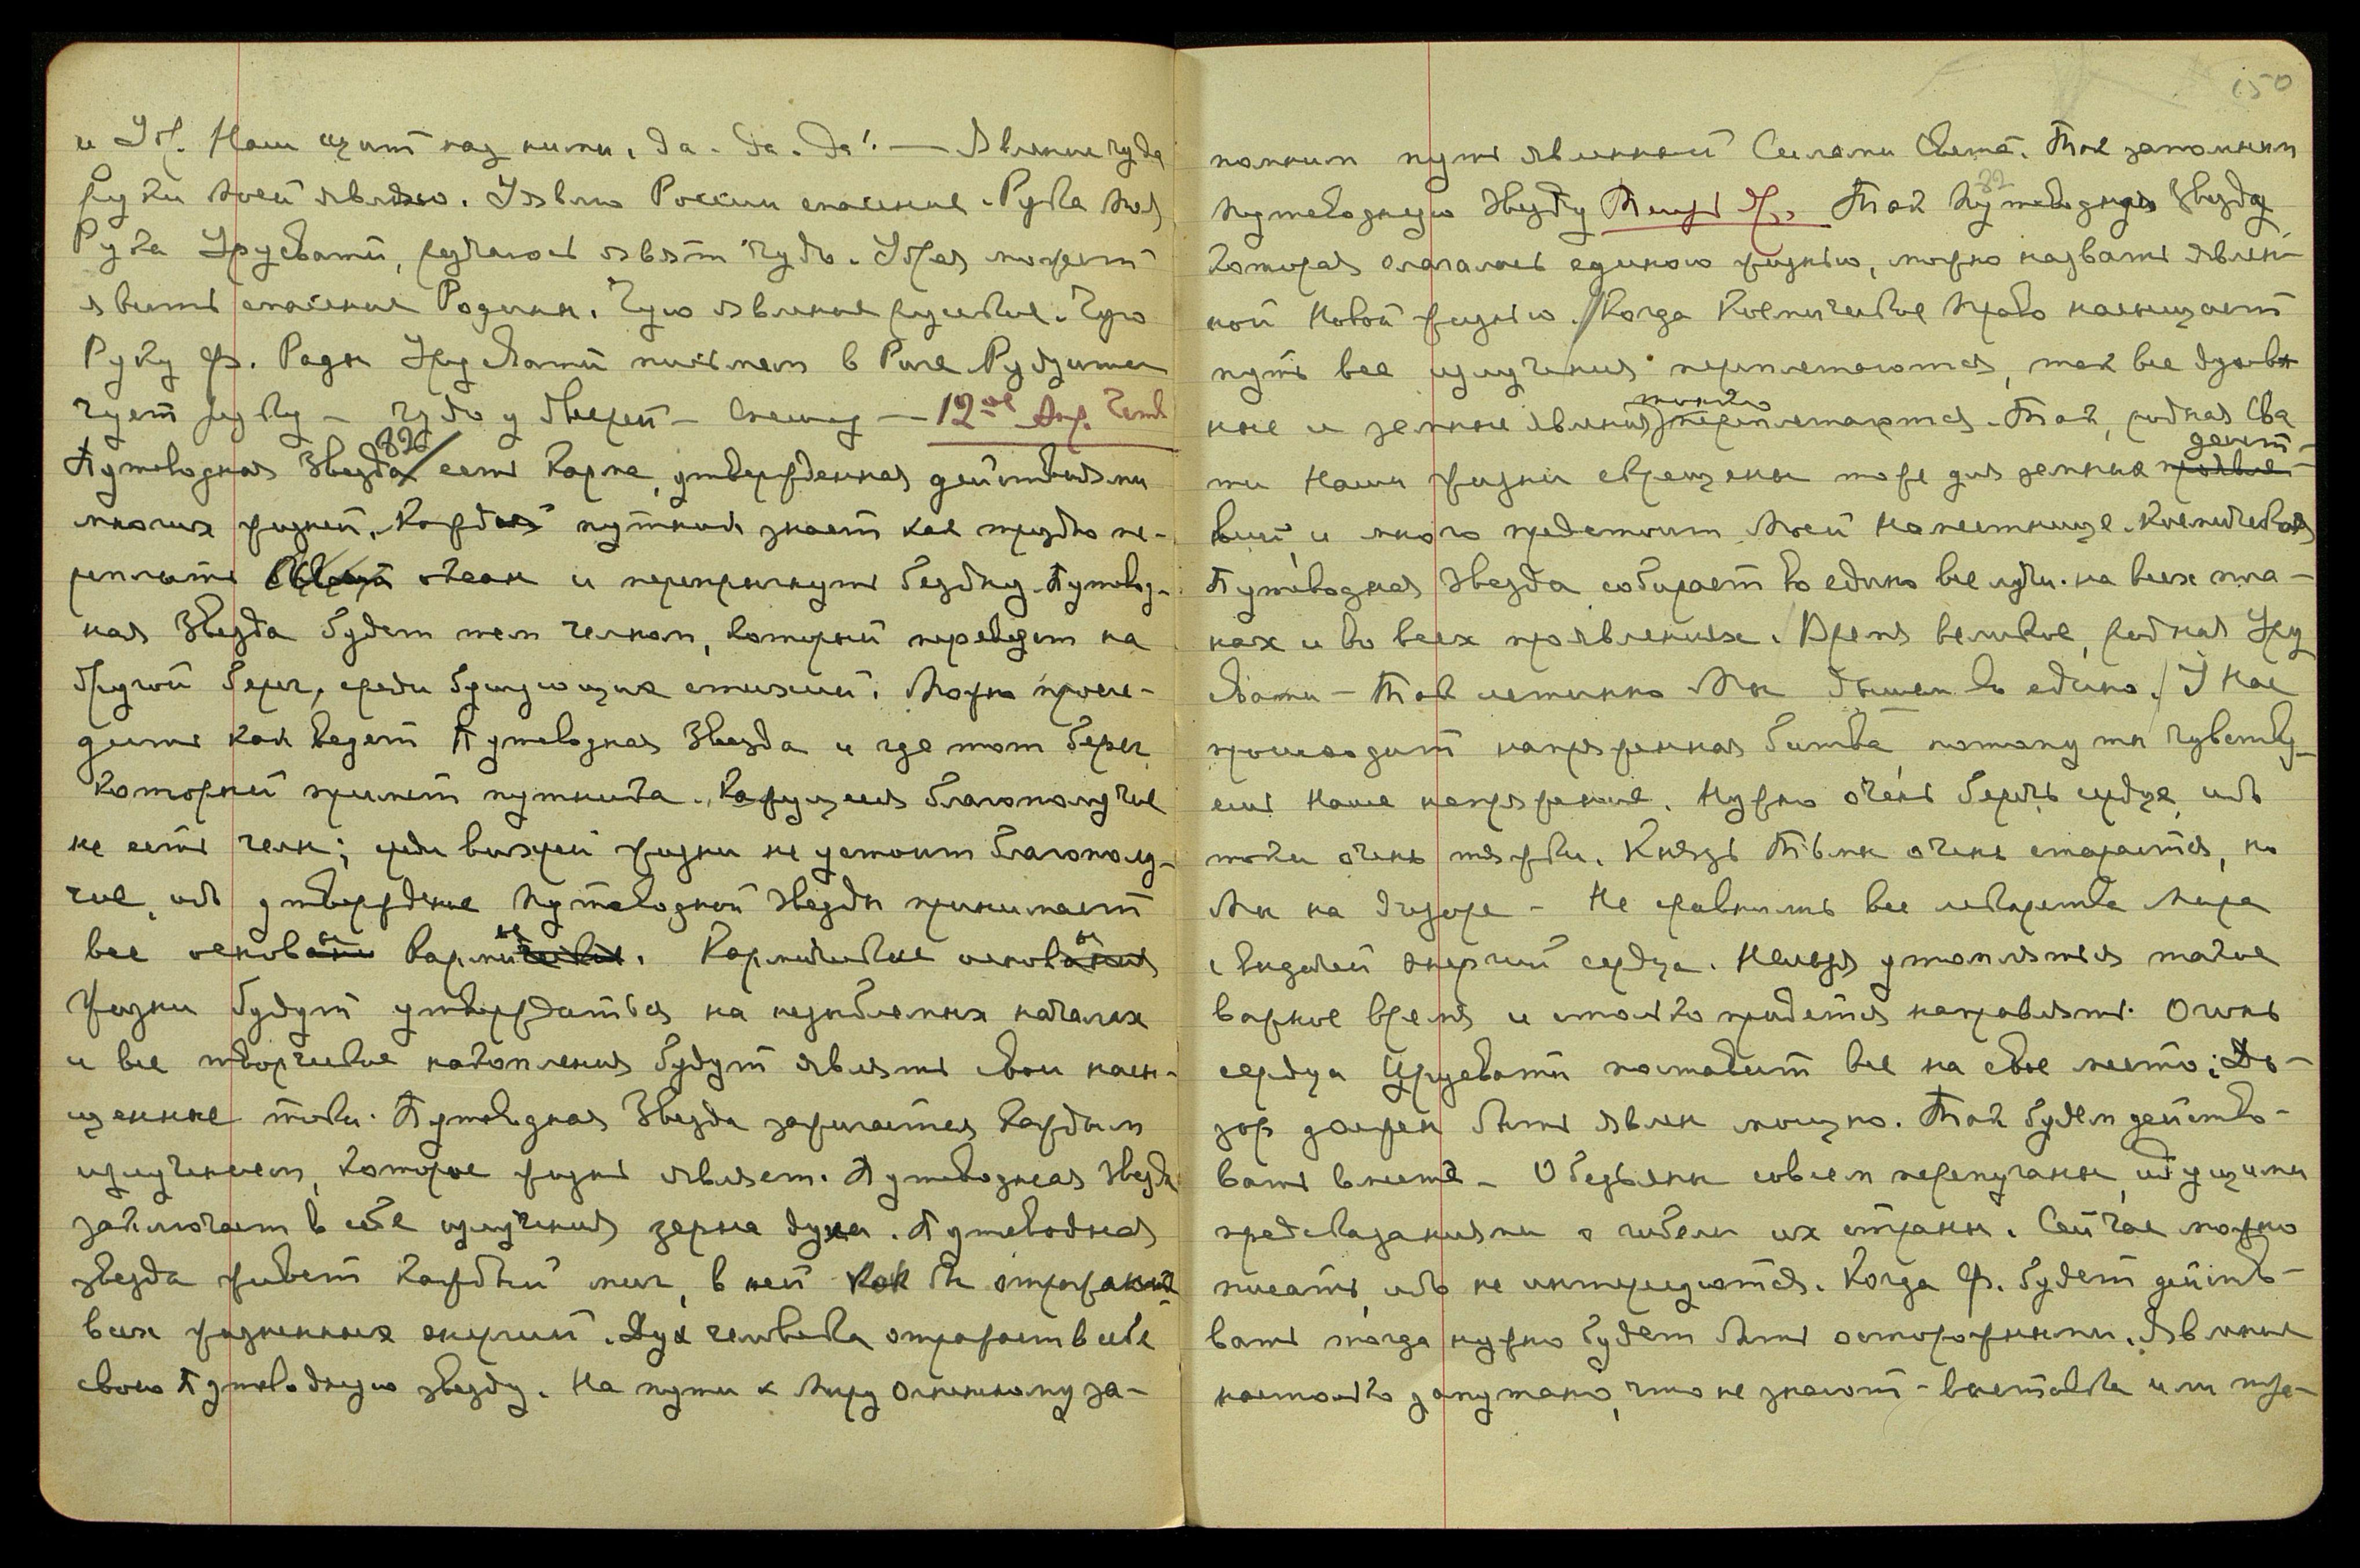 и Уд. Наш щит над ними, да. да. да! — Явление чуда
Руки Моей являю. Уявлю России спасение. Рука Моя
Рука Урусвати, ручаюсь явят чудо. Удрая может
явить спасение Родины. Чую явление русское. Чую
Руку Ф. Ради Урусвати пишем в Риге Рудзиты
чует руку — чудо у дверей — Спешу — 12-ое Апр. Четв
Путеводная Звезда 826 есть карма, утвержденная действиями
многих жизней. Каждый путник знает как трудно пе-
реплыть океан и перепрыгнуть бездну. Путевод-
ная Звезда будет тем челном, который переведет на
другой берег, среди бушующих стихий. Можно просле-
дить как ведет Путеводная Звезда и где тот берег
который примет путника. Кажущееся благополучие
не есть челн; среди вихрей жизни не устоит благополу-
чие, ибо утверждение Путеводной Звезды принимает
все основы кармы. Кармические основы
Жизни будут утверждаться на незыблемых началах
и все творческие накопления будут являть свои насы-
щенные токи. Путеводная Звезда зажигается каждым
излучением, которое жизнь являет. Путеводная Звезда
заключает в себе излучения зерна духа. Путеводная
звезда живет каждый миг, в ней как бы отражение
всех жизненных энергий. Дух человека отражает в себе
свою Путеводную звезду. На пути к Миру Огненному за-
150
помним путь явленный Силами Света. Так запомним
Путеводную Звезду 32 Так Путеводная Звезда
которая слагалась единою жизнью, можно назвать явлен-
ной Новой жизнью. / Когда Космическое Право насыщает
путь все излучения переплетаются, так все духов-
ные и земные явления тонко переплетаются. Так, родная Сва
ти Наши жизни скрещены тоже для земных дейст-
вий, и много предстоит Моей Наместнице. Космическая
Путеводная Звезда собирает во едино все лучи на всех пла-
нах и во всех проявлениях. Время великое, родная Уру
свати — Так истинно Мы дышим во едино. / У Нас
происходит напряженная битва, потому ты чувству-
ешь Наше напряжение. Нужно очень беречь сердце, ибо
токи очень тяжки. Князь Тьмы очень старается, но
Мы на дозоре — Не сравнимы все лекарства Мира
с видачей энергий сердца. Нельзя утомляться такое
важное время и столько придется направлять. Огонь
сердца Урусвати поставит все на свое место; До-
зор должен быть явлен мощно. Так будем действо-
вать вместе — Обезьяны совсем перепуганы идущими
предсказаниями о гибели их страны. Сейчас можно
писать, ибо не интересуются. Когда Ф. будет действо-
вать тогда нужно будет быть осторожными. Явление
настолько запутано, что не знают — вместо ли или